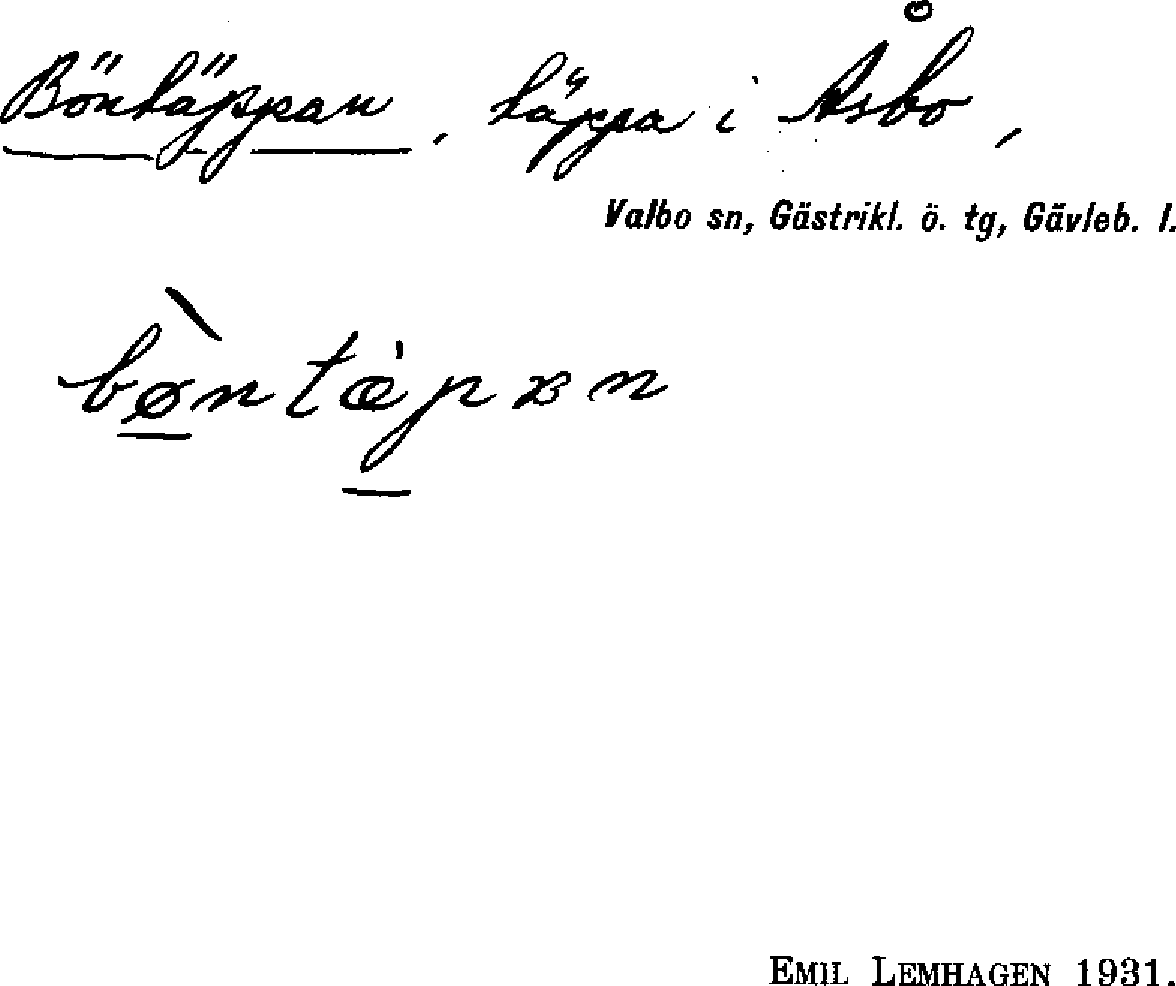 Böntäppan, täppa i Åsbo,
Valbo sn, Gästrikl. ö. tg, Gävleb. l.
bø̀ntæ̍pan
EMIL LEMHAGEN 1931.